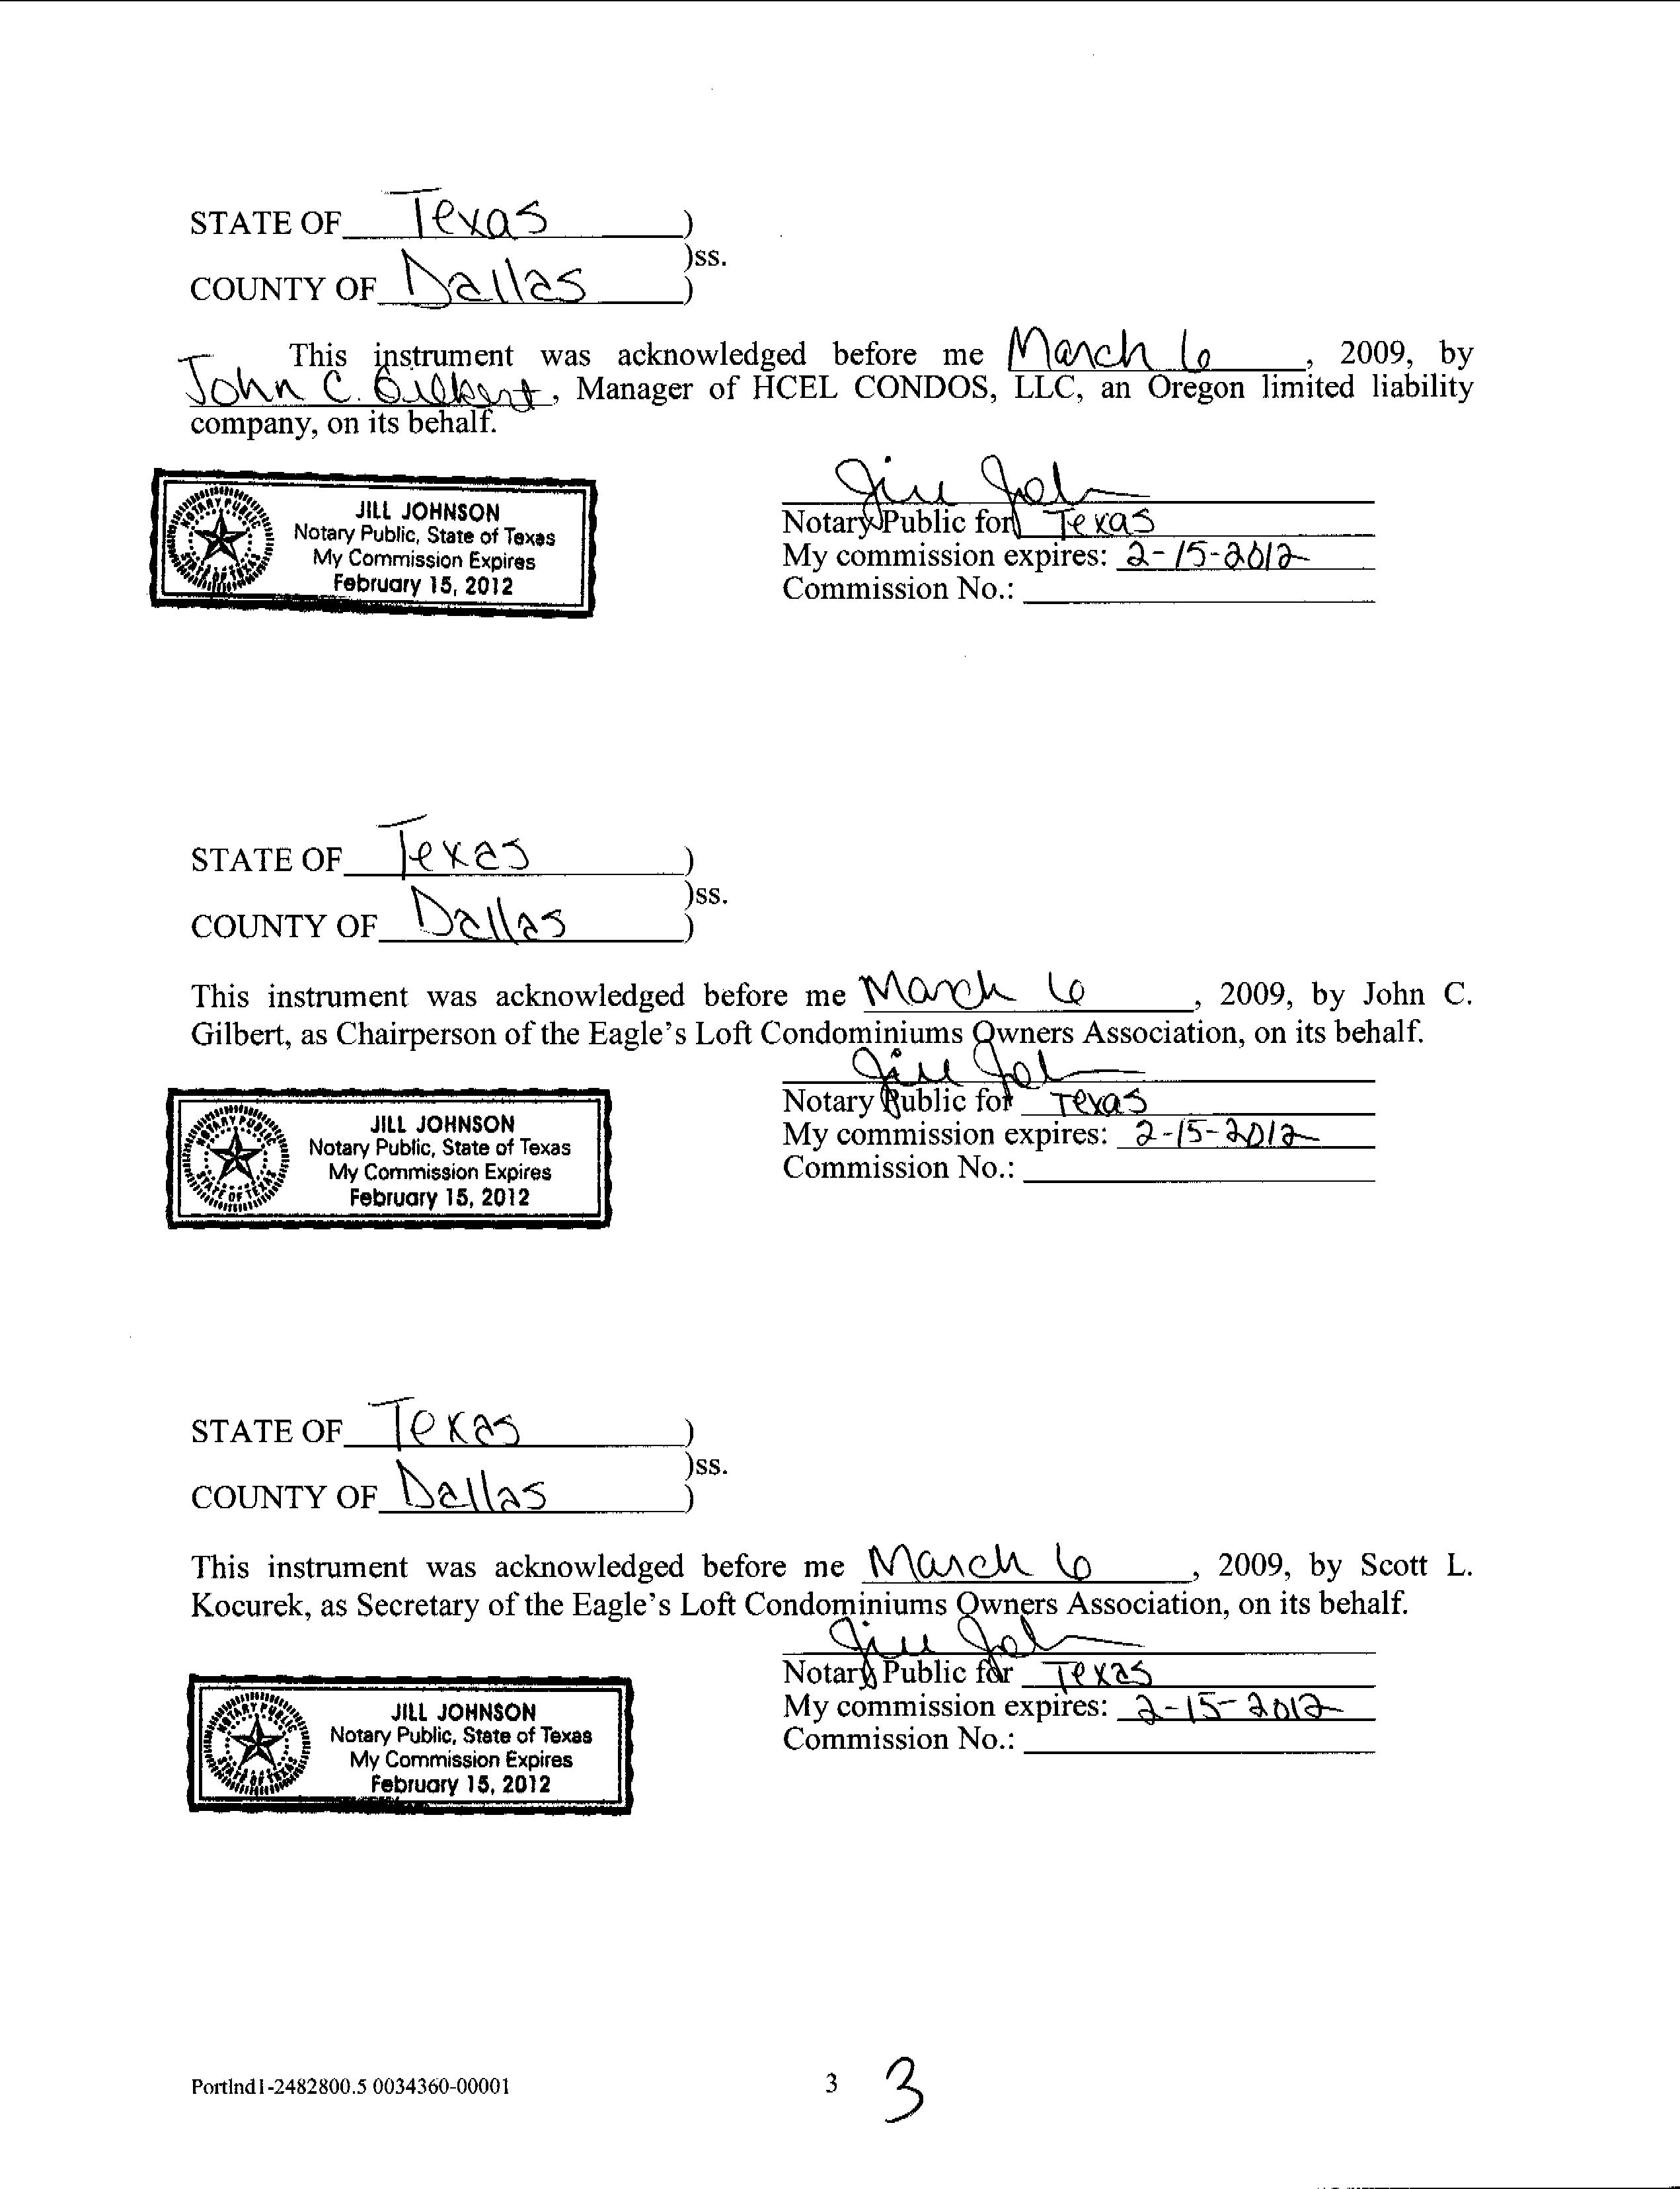 STATE OF Texas )
)ss.
COUNTY OF Dallas )
This instrument was acknowledged before me March 6, 2009, by
John C. Gilbert, Manager of HCEL CONDOS, LLC, an Oregon limited liability
company, on its behalf.
JILL JOHNSON
Notary Public, State of Texas
My Commission Expires
February 15, 2012
NOTARY PUBLIC
STATE OF TEXAS
Notary Public for Texas
My commission expires: 2-15-2012
Commission No.:
STATE OF Texas )
)ss.
COUNTY OF Dallas )
This instrument was acknowledged before me March 6, 2009, by John C.
Gilbert, as Chairperson of the Eagle's Loft Condominiums Owners Association, on its behalf.
JILL JOHNSON
Notary Public, State of Texas
My Commission Expires
February 15, 2012
NOTARY PUBLIC
STATE OF TEXAS
Notary Public for Texas
My commission expires: 2-15-2012
Commission No.:
STATE OF Texas )
)ss.
COUNTY OF Dallas )
This instrument was acknowledged before me March 6, 2009, by Scott L.
Kocurek, as Secretary of the Eagle's Loft Condominiums Owners Association, on its behalf.
JILL JOHNSON
Notary Public, State of Texas
My Commission Expires
February 15, 2012
NOTARY PUBLIC
STATE OF TEXAS
Notary Public for Texas
My commission expires: 2-15-2012
Commission No.:
Portlnd1-2482800.5 0034360-00001
3
3